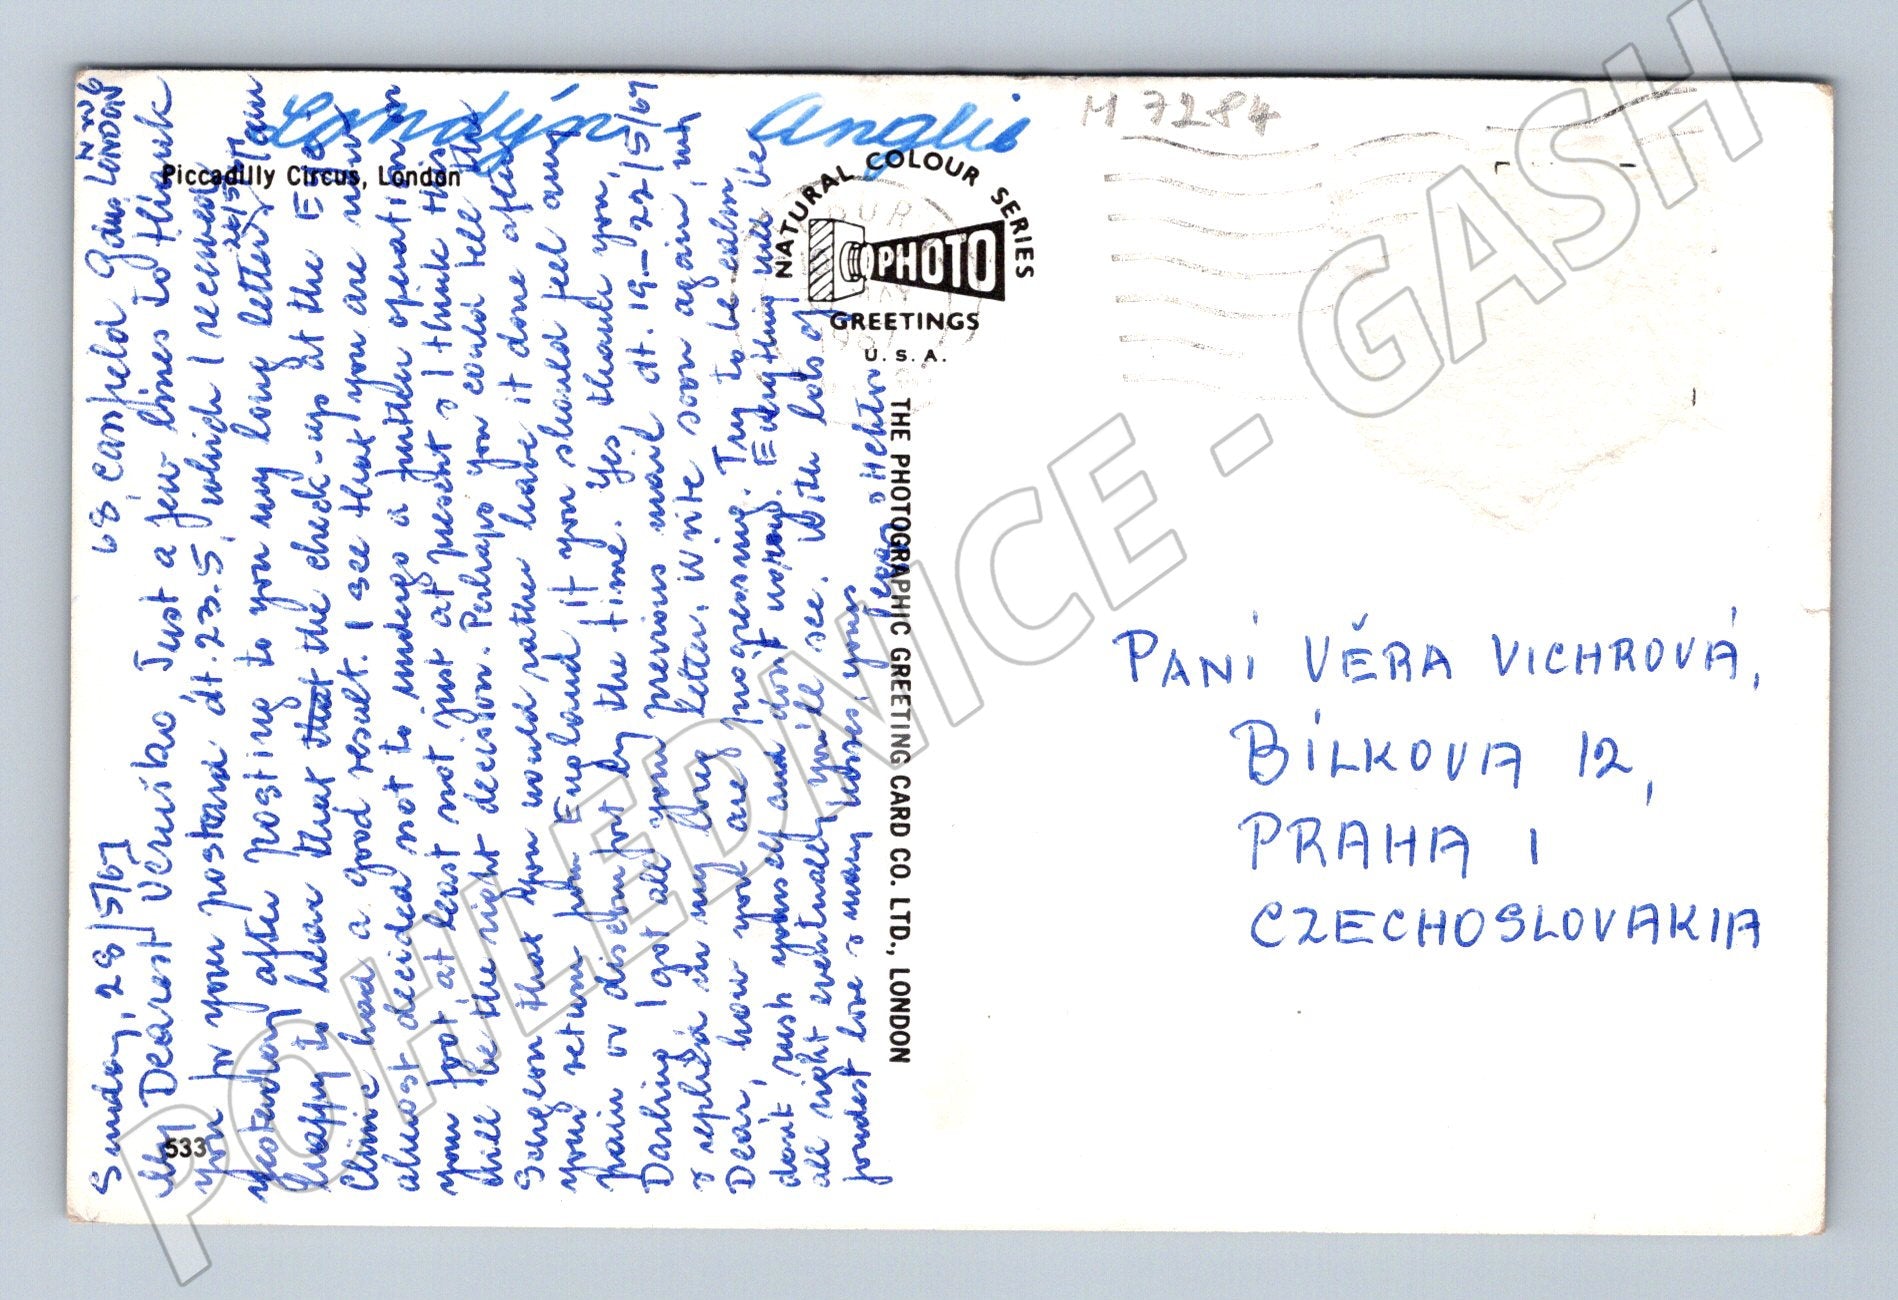 Londýn Anglie
M 7284
Piccadilly Circus, London
NATURAL COLOUR SERIES
PHOTO
GREETINGS
U. S. A.
THE PHOTOGRAPHIC GREETING CARD CO. LTD., LONDON
533
68, Canfield Gdns, LONDON
N W 6
Sunday, 28/5/67
My Dearest Veruško, Just a few lines to thank
you for your postcard dt. 23.5, which I received
yesterday after posting to you my long letter 26/5/67. I am
happy to hear that that the check-up at the Eye
Clinic had a good result. I see that you are now
almost decided not to undergo a further operation on
your foot, at least not just at present & I think this
will be the right decision. Perhaps you could tell the
Surgeon that you would rather have it done after
your return from England if you should feel any
pain or discomfort by the time. Yes thank you,
Darling I got all your previous mail dt. 19.-22/5/67
& replied in my long letter. Write soon again, my
Dear, how you are progressing. Try to be calm
don't rush yourself and don't worry. Everything will be
all right eventually, you'll see. With lots of
fondest love & many kisses, yours
PANÍ VĚRA VICHROVÁ,
BÍLKOVA 12,
PRAHA 1
CZECHOSLOVAKIA
POHLEDNICE - GASH